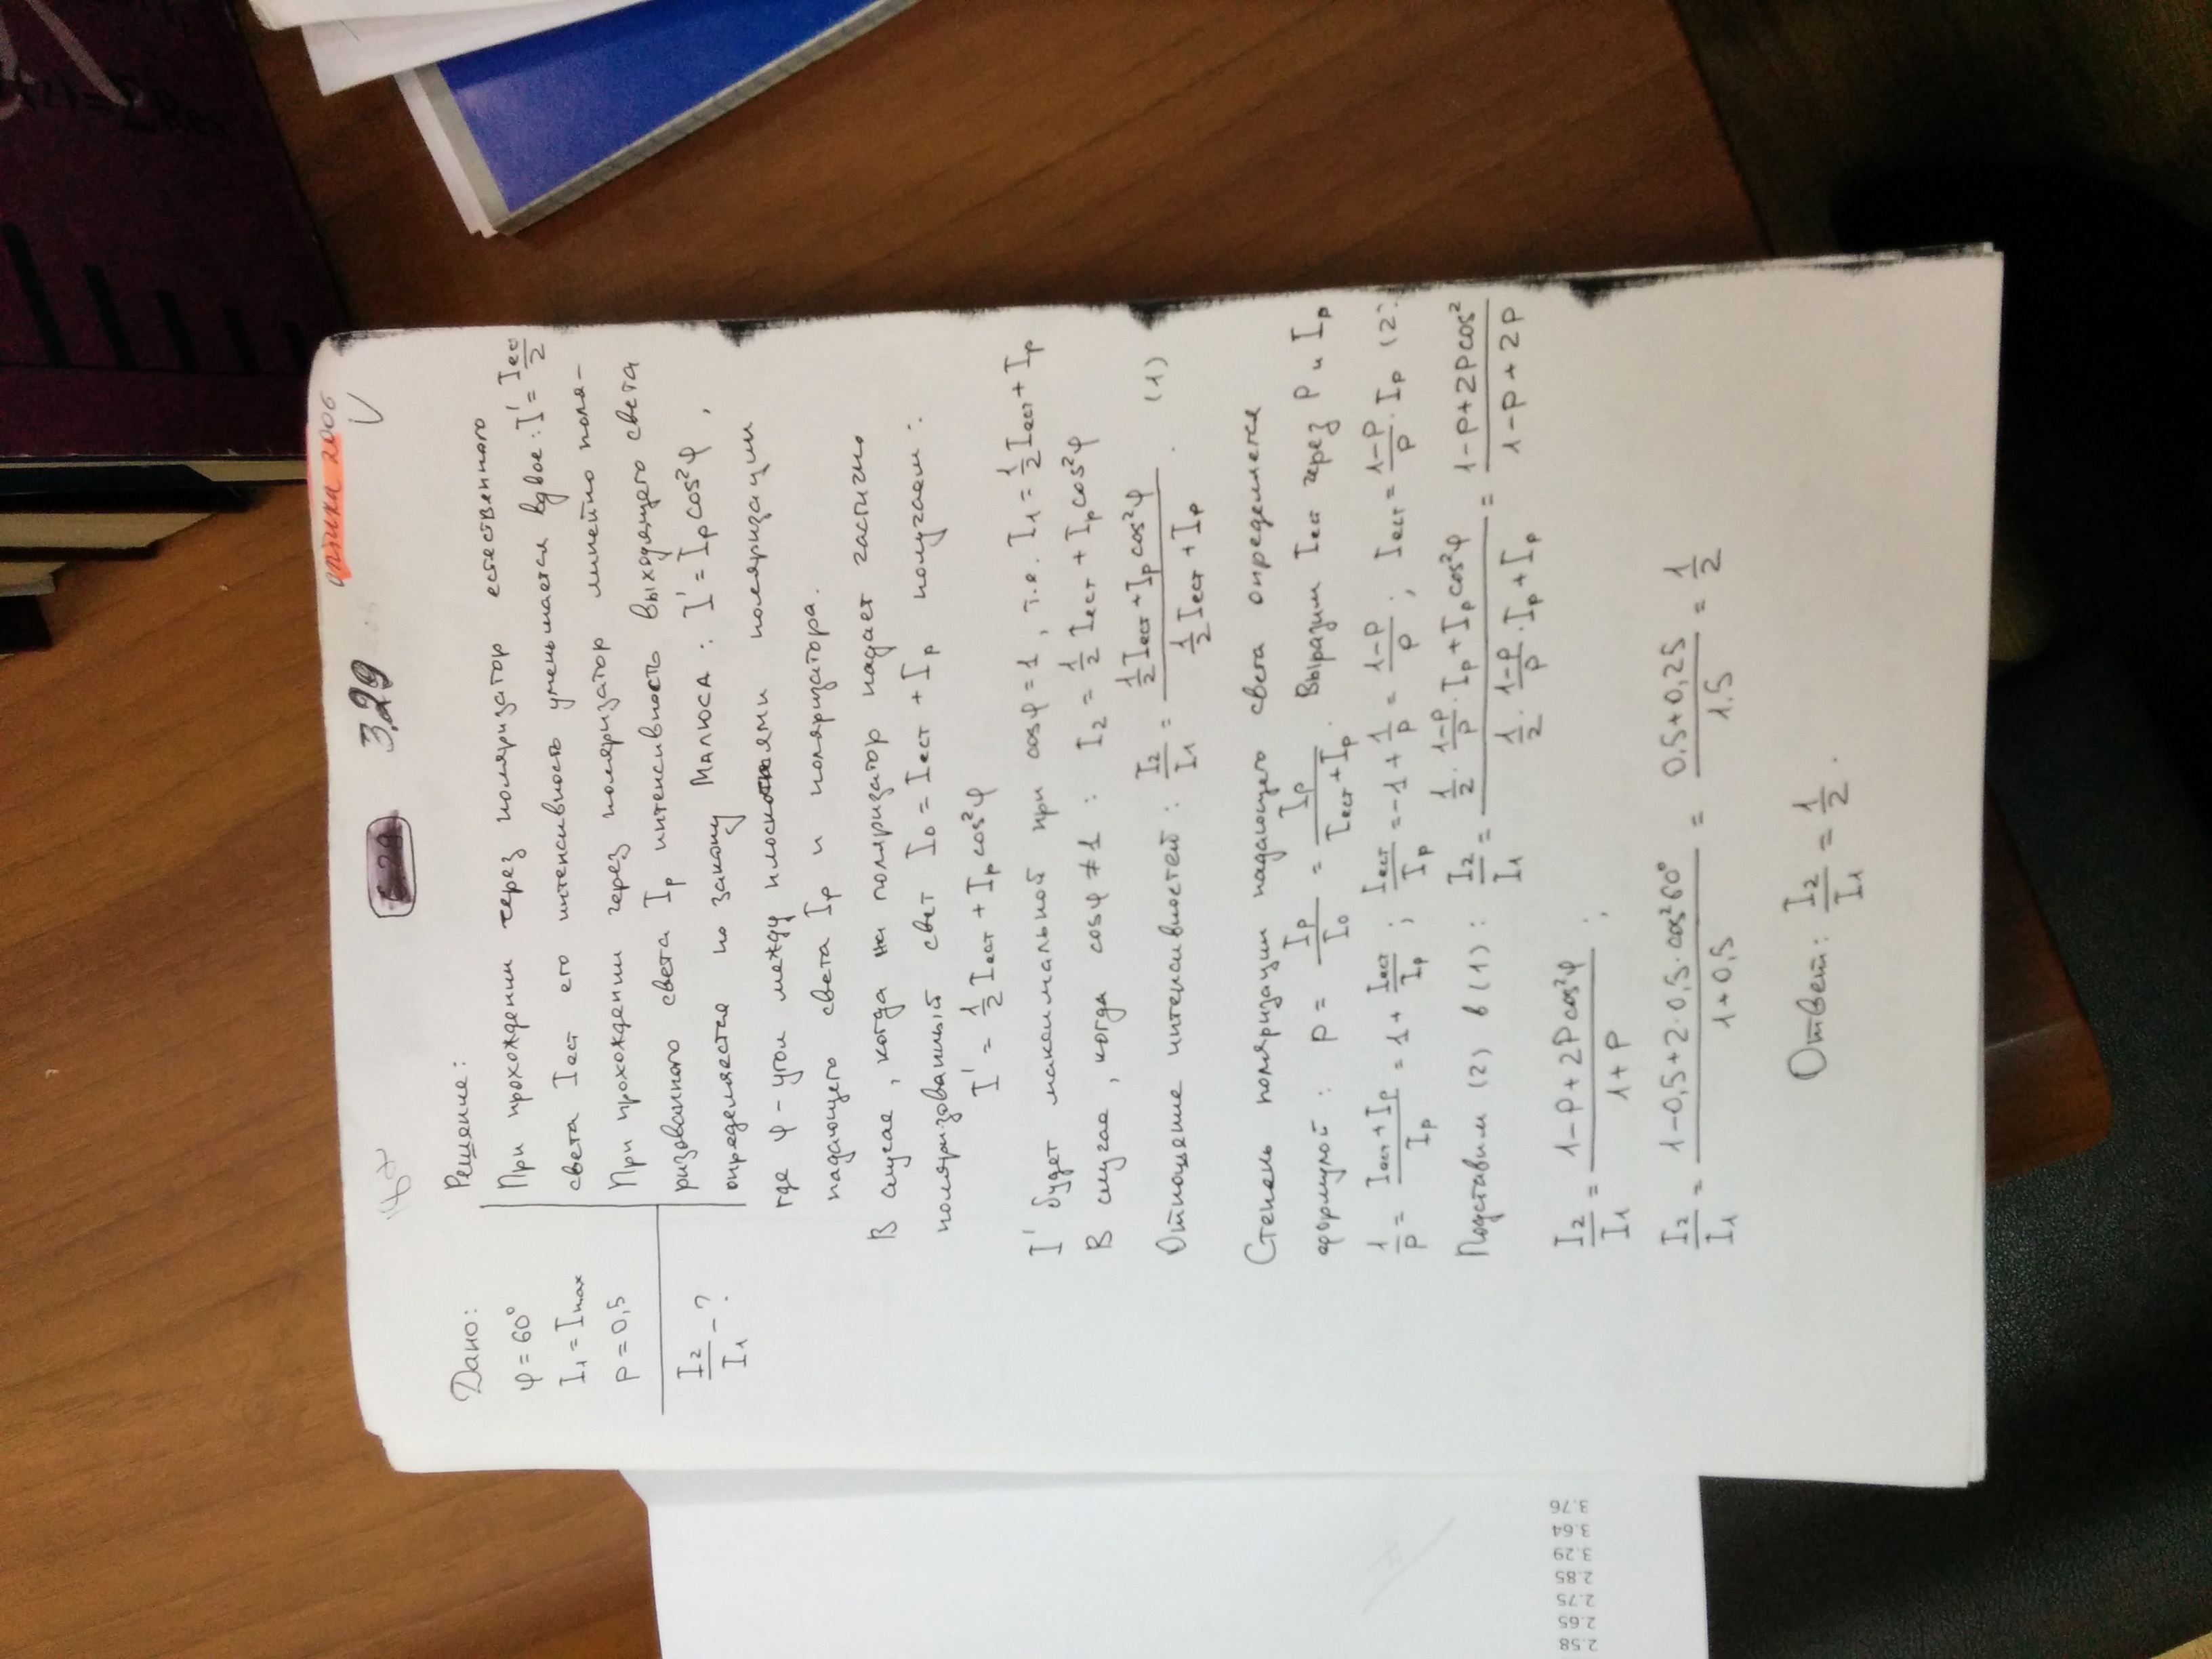 оптика 2006
3.29
V
Дано:
φ = 60°
I₁ = Imax
P = 0,5
I₂/I₁ - ?
Решение:
При прохождении через поляризатор естественного
света Iест его интенсивность уменьшается вдвое: I' = Iес/2
При прохождении через поляризатор линейно поля-
ризованного света Ip интенсивность выходящего света
определяется по закону Малюса: I' = Ip cos²φ,
где φ - угол между плоскостями поляризации
падающего света Ip и поляризатора.
В случае, когда на поляризатор падает частично
поляризованный свет I₀ = Iест + Ip получаем:
I' = 1/2 Iест + Ip cos²φ
I' будет максимальной при cosφ = 1, т.е. I₁ = 1/2 Iест + Ip
В случае, когда cosφ ≠ 1: I₂ = 1/2 Iест + Ip cos²φ
Отношение интенсивностей: I₂/I₁ = (1/2 Iест + Ip cos²φ)/(1/2 Iест + Ip). (1)
Степень поляризации падающего света определяется
формулой: P = Ip/I₀ = Ip/(Iест + Ip). Выразим Iест через P и Ip
1/P = (Iест + Ip)/Ip = 1 + Iест/Ip; Iест/Ip = -1 + 1/P = (1-P)/P; Iест = (1-P)/P · Ip (2)
Подставим (2) в (1): I₂/I₁ = (1/2 · (1-P)/P · Ip + Ip cos²φ)/(1/2 · (1-P)/P · Ip + Ip) = (1-P+2Pcos²)/(1-P+2P)
I₂/I₁ = (1-P+2Pcos²φ)/(1+P);
I₂/I₁ = (1-0,5+2·0,5·cos²60°)/(1+0,5) = (0,5+0,25)/1.5 = 1/2
Ответ: I₂/I₁ = 1/2.
2.58
2.65
2.75
2.85
3.29
3.64
3.76